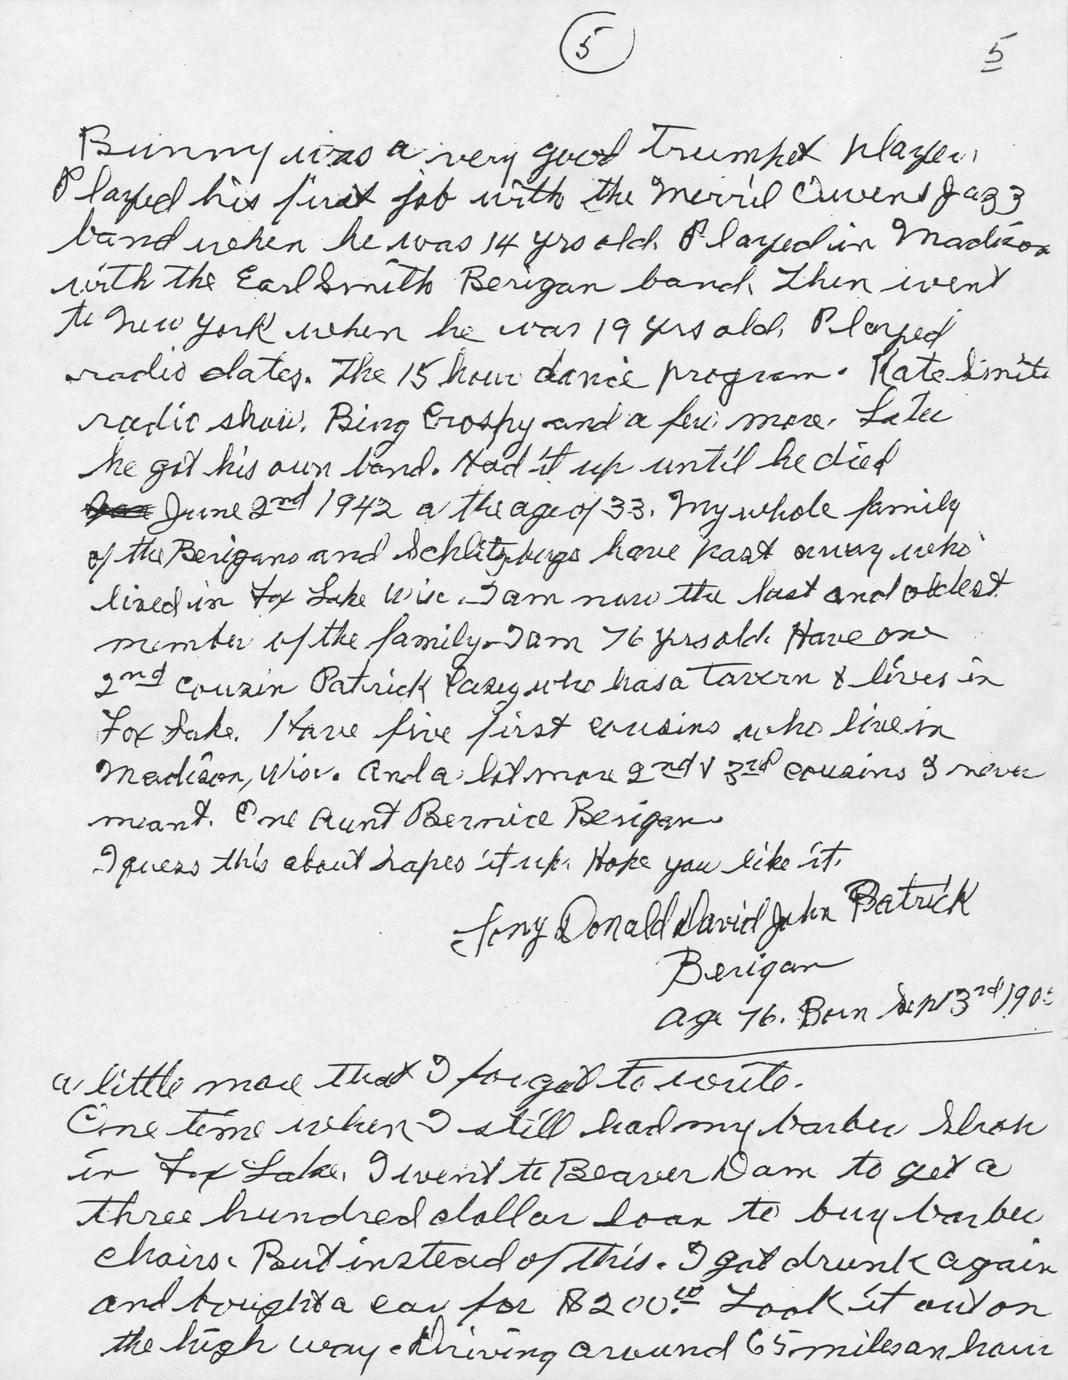 5 5
Bunny was a very good trumpet player.
Played his first job with the Merril Owens Jazz
band when he was 14 yrs old. Played in Madison
with the Earl Smith Berigan band. Then went
to New York when he was 19 yrs old. Played
radio dates. The 15 hour dance program. Kate Smith
radio show. Bing Crospy and a few more. Later
he got his own band. Had it up until he died
June 2nd 1942 a the age of 33. My whole family
of the Berigans and have past away who
lived in Fox Lake Wisc. I am now the last and oldest
member of the family. I am 76 yrs old. Have one
2nd cousin Patrick Casey who has a Tavern & lives in
Fox Lake. Have five first cousins who live in
Madison, Wisc. And a lot more 2nd & 3rd cousins I never
meant. One Aunt Bernice Berigan
I guess this about raps it up. Hope you like it.
Donald David John Patrick
Berigan
age 76. Born Sept 3rd
a little more that I forgot to write.
One time when I still had my barber Shop
in Fox Lake. I went to Beaver Dam to get a
three hundred dollar loan to buy barber
chairs. But instead of this. I got drunk again
and bought a car for $200.00 Took it out on
the high way. Driving around 65 miles an hour